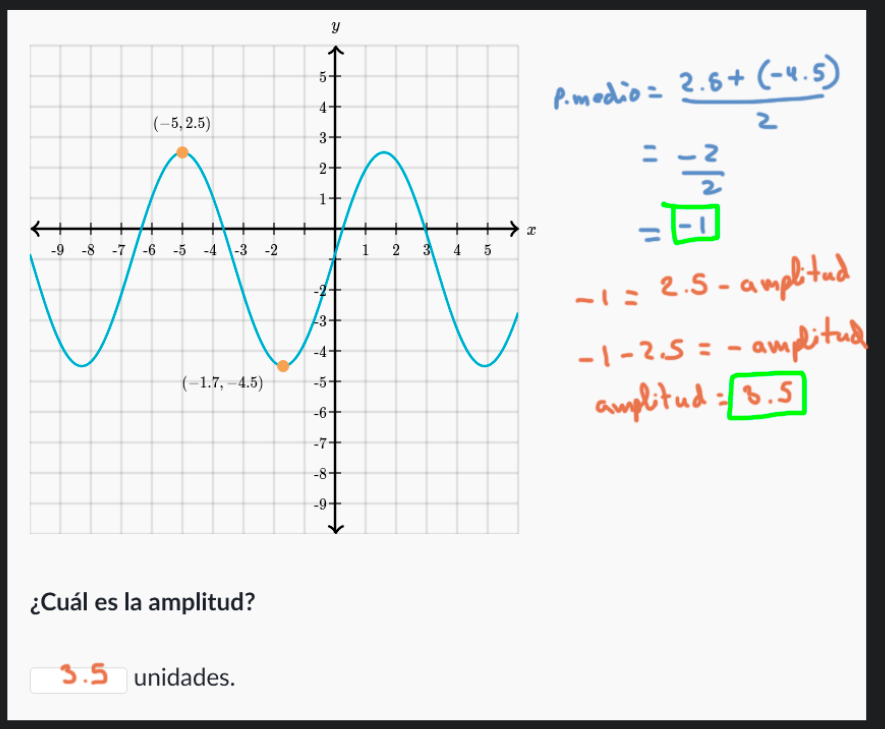 y
5
4
(−5, 2.5)
3
2
1
x
-9 -8 -7 -6 -5 -4 -3 -2 1 2 3 4 5
-2
-3
-4
(−1.7, −4.5)
-5
-6
-7
-8
-9
P.medio = 2.5 + (-4.5)
2
= -2
2
= -1
-1 = 2.5 - amplitud
-1 - 2.5 = - amplitud
amplitud = 3.5
¿Cuál es la amplitud?
3.5 unidades.